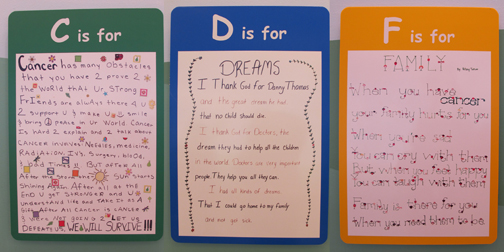 C is for
Cancer has many obstacles
that you have 2 prove 2
the world that Ur strong
Friends are always there 4 U
2 support U make U smile
bring peace in Ur world Cancer
Is hard 2 explain and 2 talk about
Cancer involves: Needles, medicine,
Radiation, IV's, surgery, blood,
bad times!! But after all
After the storm the sun starts
Shining After all at the
end U get stronger and
understand life and take it as a
gift. After all cancer is cancer
& were not going 2 let us
defeat us, we will SURVIVE!!!
D is for
DREAMS
I Thank God for Danny Thomas
and his great dream he had
that no child should die.
I thank God for Doctors, the
dream they had to help all the children
in the world. Doctors are very important
people. They help you all they can.
I had all kinds of dreams
That I could go home to my family
and not get sick.
F is for
FAMILY
When you have
cancer
your family hurts for you
When you're sad
You can cry with them
But when you feel happy
You can laugh with them
Family is there for you
When you need them to be